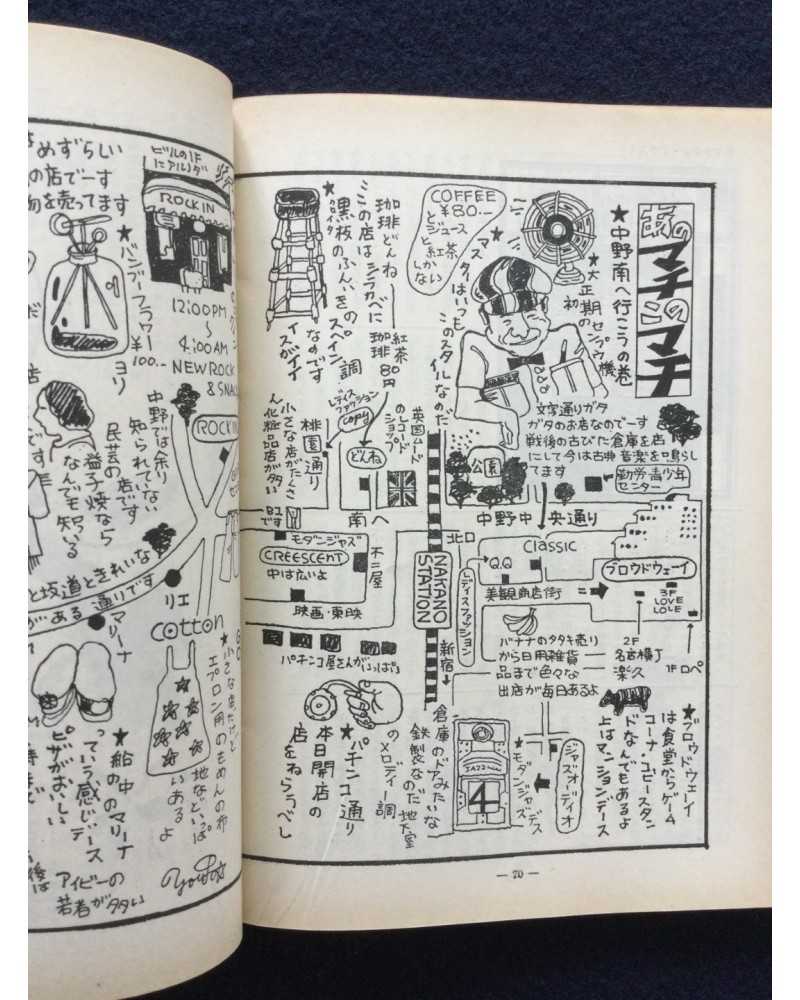 あのマチこのマチ
★中野南へ行こうの巻
★大正期の
初センプウ機
COFFEE
¥80.-
とジュース
と紅茶
しかない
マスターはいつも
このスタイルなのだ
文字通りガタ
ガタのお店なのでーす
戦後の古びた倉庫を店
にして今は古典音楽を鳴らし
てます
勤労青少年
センター
★黒板のふんいきのスペイン調
なのです
イスがイイ
この店はシラカベに
珈琲どんね
紅茶
珈琲 80円
レディス
ファッション
copy
桃園通り
小さな店がたくさ
ん化粧品店が多い
英国ムード
のレコード
ショップ
どんね
公園
南へ
中野中央通り
北口
モダンジャズ
CREESCENT
中は広いよ
不二屋
映画・東映
NAKANO
STATION
新宿→
Classic
Q.Q
レディスファッション
美観商店街
ブロウドウェーイ
3F
LOVE
LOVE
2F
名古横丁
楽久
1F ロペ
バナナのタタキ売り
から日用雑貨
品まで色々な
出店が毎日あるよ
パチンコ屋さんがいっぱい
★パチンコ通り
本日開店の
店をねらうべし
倉庫のドアみたいな
鉄製なのだ 地下室
のメロディー調
JAZZ
4
★モダンジャズデス
ジャズオーディオ
★ブロウドウェーイ
は食堂からゲーム
コーナ コピースタン
ドなんでもあるよ
上はマンションデース
— 70 —
めずらしい
の店でーす
物を売ってます
ビルの1F
にアルノダ
ROCK IN
12:00PM
〜
4:00AM
NEW ROCK
& SNAC
★ハンブフラワー
¥100.-ヨリ
ROCK IN
中野では余り
知られていない
民芸の店です
益子焼なら
なんでも知っている
と坂道ときれいな
がある通りです
リエ
マリーナ
cotton
★小さな店だけど
エプロン用のもめんの布
地などいっぱ
いあるよ
★船の中のマリーナ
っていう感じデース
ピザがおいしい
アイビーの
若者が多い